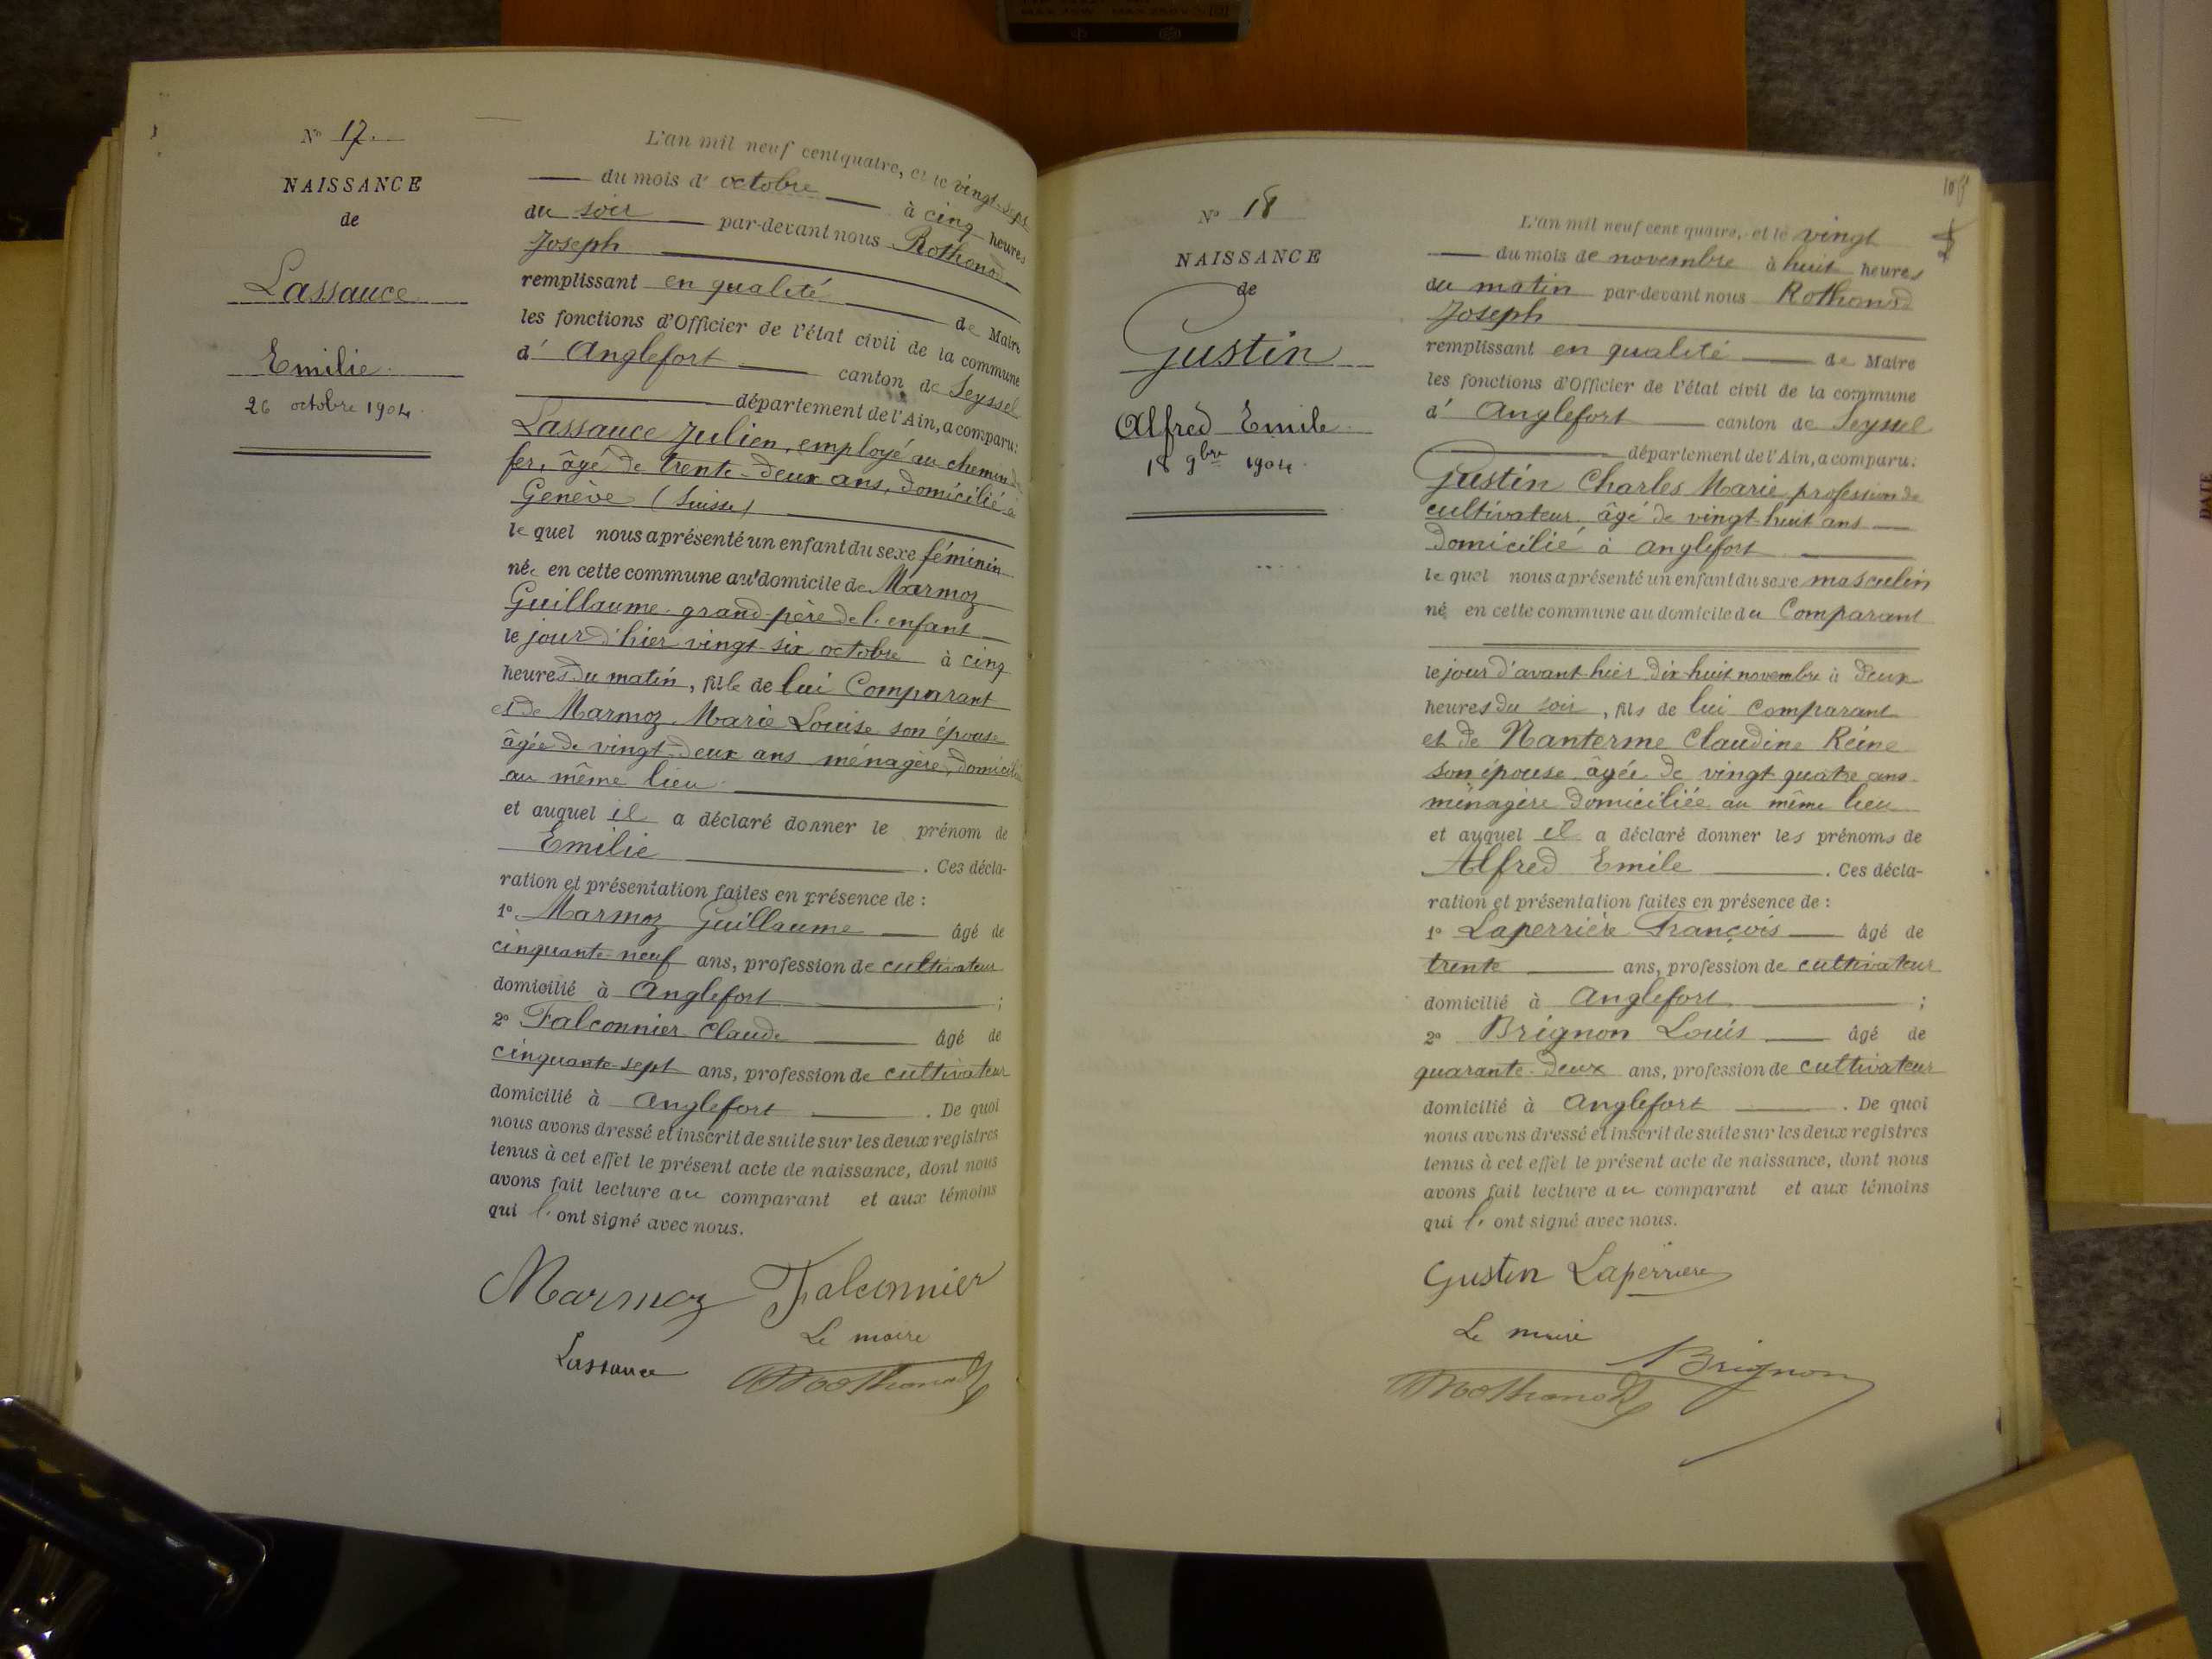 N° 17.
NAISSANCE
de
Lassauce
Emilie
26 octobre 1904.
L'an mil neuf cent quatre, et le vingt-sept
du mois d' octobre à cinq heures
du soir par-devant nous Rothonod
Joseph
remplissant en qualité de Maire
les fonctions d'Officier de l'état civil de la commune
d' Anglefort canton de Seyssel
département de l'Ain, a comparu:
Lassauce Julien, employé au chemin de
fer, âgé de trente-deux ans, domicilié à
Genève (Suisse)
lequel nous a présenté un enfant du sexe féminin
née en cette commune au domicile de Marmoz
Guillaume grand-père de l'enfant
le jour d'hier vingt-six octobre à cinq
heures du matin, fille de lui Comparant
et de Marmoz Marie Louise son épouse
âgée de vingt-deux ans ménagère, domiciliée
au même lieu
et auquel il a déclaré donner le prénom de
Emilie . Ces décla-
ration et présentation faites en présence de :
1° Marmoz Guillaume âgé de
cinquante-neuf ans, profession de cultivateur
domicilié à Anglefort ;
2° Falconnier Claude âgé de
cinquante-sept ans, profession de cultivateur
domicilié à Anglefort . De quoi
nous avons dressé et inscrit de suite sur les deux registres
tenus à cet effet le présent acte de naissance, dont nous
avons fait lecture au comparant et aux témoins
qui l' ont signé avec nous.
Marmoz Falconnier
Le maire
Lassauce Rothonod
N° 18
NAISSANCE
de
Gustin
Alfred Emile
18 9bre 1904.
L'an mil neuf cent quatre, et le vingt
du mois de novembre à huit heures
du matin par-devant nous Rothonod
Joseph
remplissant en qualité de Maire
les fonctions d'Officier de l'état civil de la commune
d' Anglefort canton de Seyssel
département de l'Ain, a comparu:
Gustin Charles Marie profession de
cultivateur âgé de vingt-huit ans
domicilié à Anglefort
lequel nous a présenté un enfant du sexe masculin
né en cette commune au domicile du Comparant
le jour d'avant-hier dix-huit novembre à deux
heures du soir, fils de lui Comparant
et de Nanterme Claudine Reine
son épouse âgée de vingt-quatre ans
ménagère domiciliée au même lieu
et auquel il a déclaré donner les prénoms de
Alfred Emile . Ces décla-
ration et présentation faites en présence de :
1° Laperrière François âgé de
trente ans, profession de cultivateur
domicilié à Anglefort ;
2° Brignon Louis âgé de
quarante-deux ans, profession de cultivateur
domicilié à Anglefort . De quoi
nous avons dressé et inscrit de suite sur les deux registres
tenus à cet effet le présent acte de naissance, dont nous
avons fait lecture au comparant et aux témoins
qui l' ont signé avec nous.
Gustin Laperriere
Le maire Brignon
Rothonod
DATE